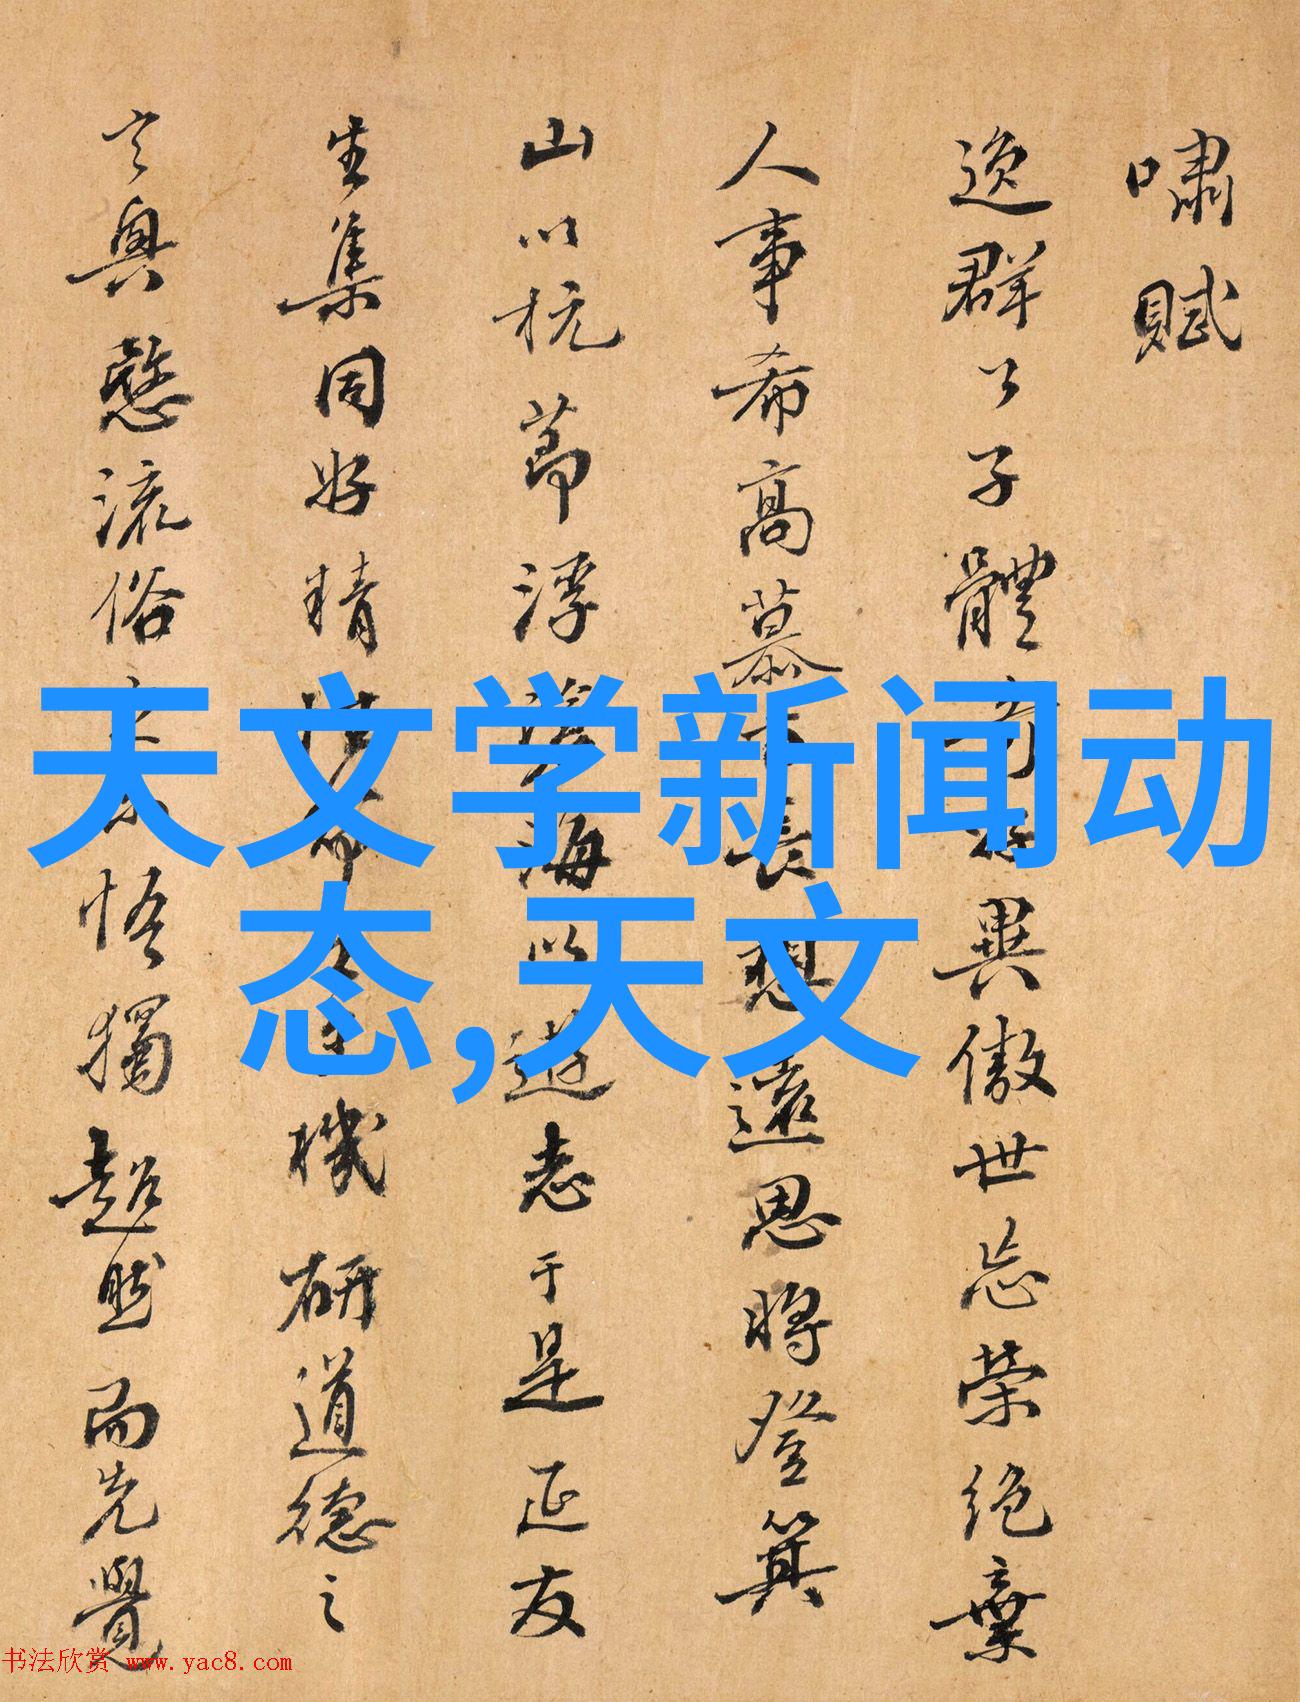 嘯賦
逸群公子體異傲世忘榮絕棄
人事希高慕長想遠思將登箕
山以抗節浮海以遊志于是延友
生集同好精機研道德之
玄奥愍流俗悟獨超然而先覺
天文学新闻动
态,天文
书法欣赏 www.yac8.com